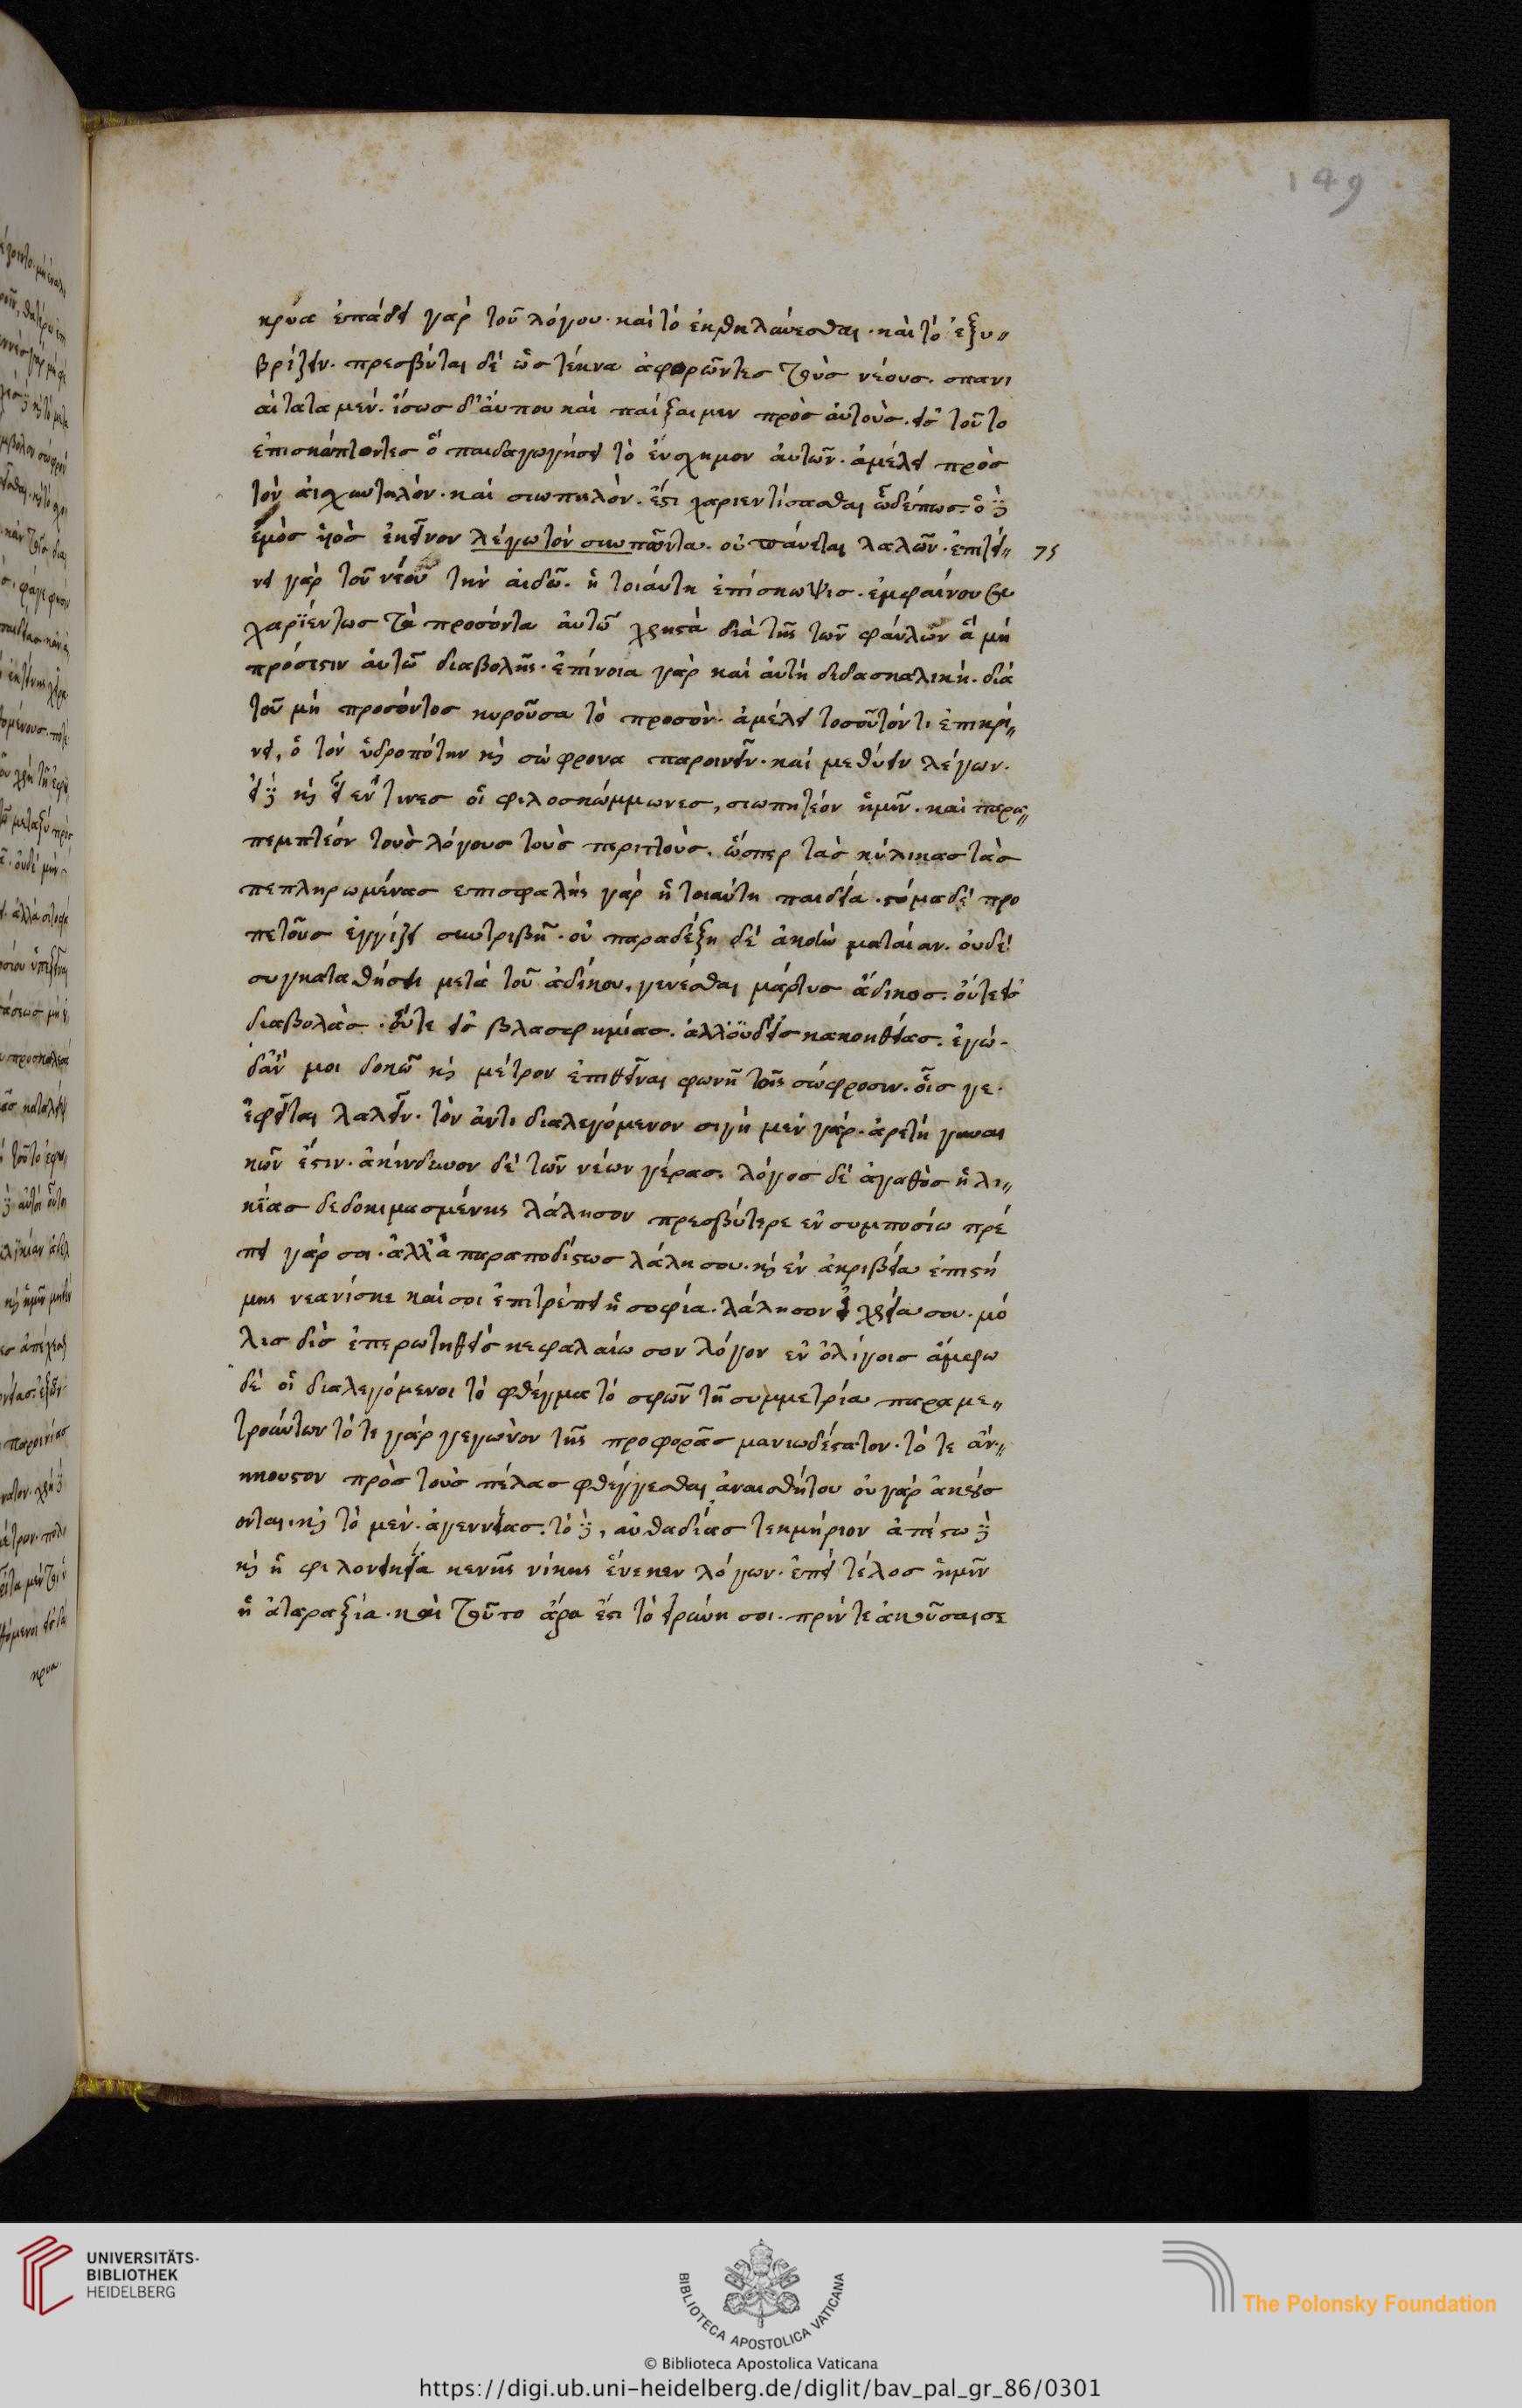 149
κρύα ἐπάδει γὰρ τοῦ λόγου· καὶ τὸ ἐκθηλύνεσθαι· καὶ τὸ ἐξυ〃
βρίζειν· πρεσβύται δὲ ὡς τέκνα ἀφορῶντες τοὺς νέους. σπανι
αίτατα μὲν· ἴσως δ' ἄν που καὶ παίξαιμεν πρὸς αὐτοὺς. εἰς τοῦτο
ἐπισκώπτοντες ὃ παιδαγωγήσει τὸ εὔσχημον αὐτῶν· ἀμέλει πρὸς
τὸν αἰσχυντηλὸν· καὶ σιωπηλὸν. ἔστι χαριεντίσασθαι ὧδέ πως· ὁ δὲ
ἐμὸς υἱὸς ἐκεῖνον λέγω τὸν σιωπῶντα. οὐ παύεται λαλῶν· ἐπιτεί〃 75
νει γὰρ τοῦ νέου τὴν αἰδῶ· ἡ τοιαύτη ἐπίσκωψις· ἐμφαίνουσα
χαριέντως τὰ προσόντα αὐτῷ χρηστὰ διὰ τῆς τῶν φαύλων ἃ μὴ
πρόσεστιν αὐτῷ διαβολῆς· ἐπίνοια γὰρ καὶ αὐτὴ διδασκαλικὴ· διὰ
τοῦ μὴ προσόντος κυροῦσα τὸ προσὸν· ἀμέλει τοσοῦτόν τι ἐπικρί〃
νει, ὁ τὸν ὑδροπότην καὶ σώφρονα παροινεῖν· καὶ μεθύειν λέγων.
εἰ δὲ καὶ εἶεν τινες οἱ φιλοσκώμμωνες, σιωπητέον ἡμῖν· καὶ παρα〃
πεμπτέον τοὺς λόγους τοὺς περιττοὺς. ὥσπερ τὰς κύλικας τὰς
πεπληρωμένας ἐπισφαλὴς γὰρ ἡ τοιαύτη παιδεία. στόμα δὲ προ
πετοῦς ἐγγίζει συντριβῇ· οὐ παραδέξῃ δὲ ἀκοὴν ματαίαν. οὐδὲ
συγκαταθήσει μετὰ τοῦ ἀδίκου, γενέσθαι μάρτυς ἄδικος. οὔτε εἰς
διαβολὰς. οὔτε εἰς βλασφημίας. ἀλλ' οὐδ' εἰς κακοηθείας. ἐγὼ
δ' ἄν μοι δοκῶ καὶ μέτρον ἐπιθεῖναι φωνῇ τοῖς σώφροσιν. οἷς γε·
ἐφεῖται λαλεῖν· τὸν ἀντιδιαλεγόμενον σιγὴ μὲν γὰρ· ἀρετὴ γυναι
κῶν ἐστιν. ἀκίνδυνον δὲ τῶν νέων γέρας. λόγος δὲ ἀγαθὸς ἡλι〃
κίας δεδοκιμασμένης λάλησον πρεσβύτερε ἐν συμποσίω πρέ
πει γάρ σοι. ἀλλὰ παραποδίστως λάλησον. καὶ ἐν ἀκριβεία ἐπιστή
μης νεανίσκε καί σοι ἐπιτρέπει ἡ σοφία. λάλησον εἰ χρεία σου. μό
λις δὶς ἐπερωτηθεὶς κεφαλαίωσον λόγον ἐν ὀλίγοις ἄμφω
δὲ οἱ διαλεγόμενοι τὸ φθέγμα τὸ σφῶν τῇ συμμετρία παραμε〃
τρούντων τό τε γὰρ γεγωνὸν τῆς προφορᾶς μανιωδέστατον. τό τε ἀν〃
ήκουστον πρὸς τοὺς πέλας φθέγγεσθαι ἀναισθήτου οὐ γὰρ ἀκούσ
ονται. καὶ τὸ μὲν. ἀγεννείας. τὸ δὲ, αὐθαδείας τεκμήριον ἀπέστω δὲ
καὶ ἡ φιλονεικεία κενῆς νίκης ἕνεκεν λόγων. ἐπεὶ τέλος ἡμῖν
ἡ ἀταραξία. καὶ τοῦτο ἄρα ἐστι τὸ εἰρήνη σοι. πρὶν τε ἀκοῦσαι σε
UNIVERSITÄTS-
BIBLIOTHEK
HEIDELBERG
BIBLIOTECA APOSTOLICA VATICANA
The Polonsky Foundation
© Biblioteca Apostolica Vaticana
https://digi.ub.uni-heidelberg.de/diglit/bav_pal_gr_86/0301